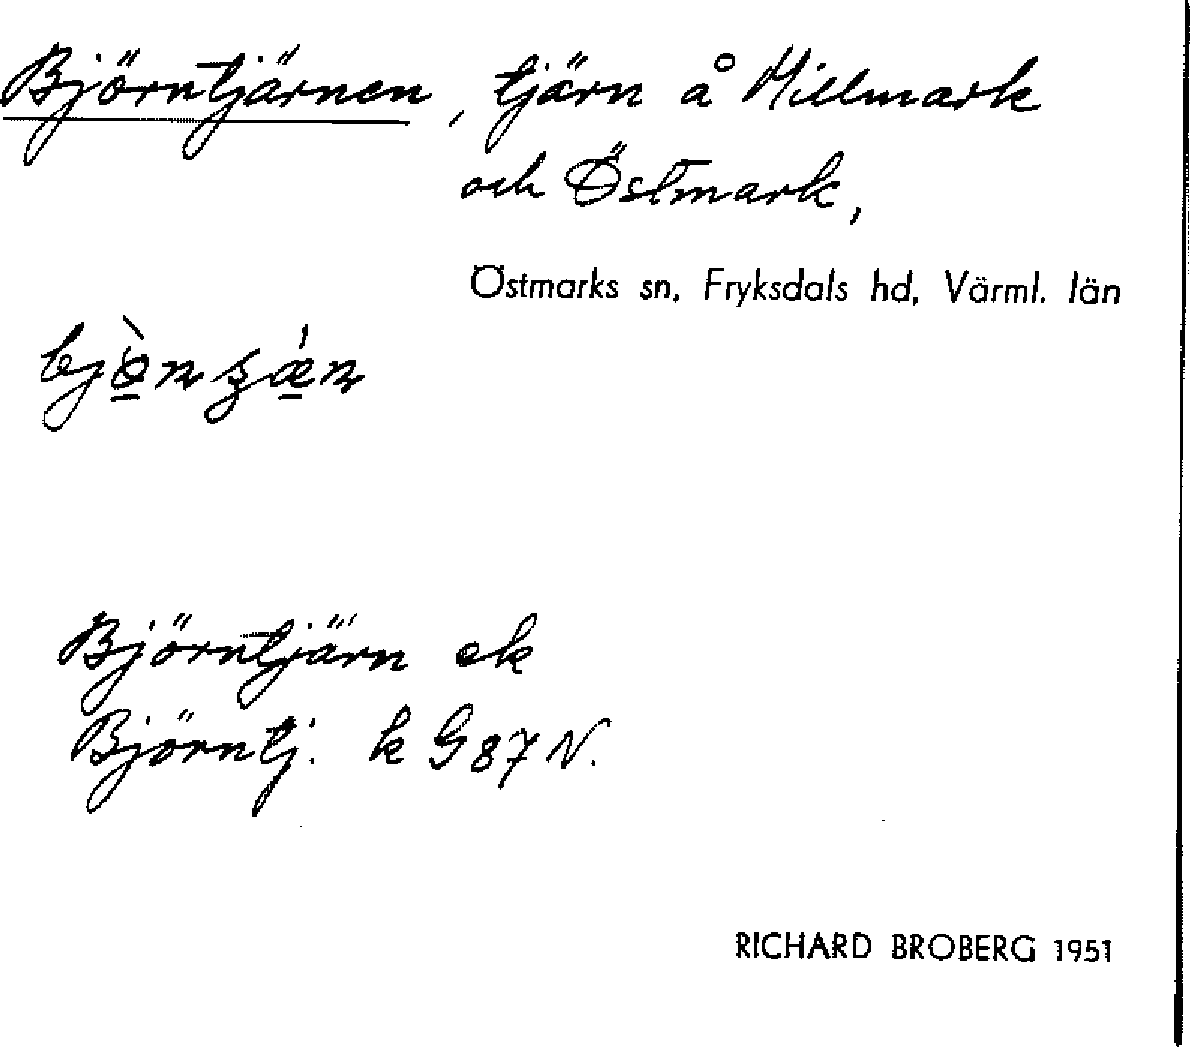 Björntjärnen, tjärn å Millmark
och Östmark,
Östmarks sn, Fryksdals hd, Värml. län
Björntjärn ek
Björntj. k G87 N.
RICHARD BROBERG 1951